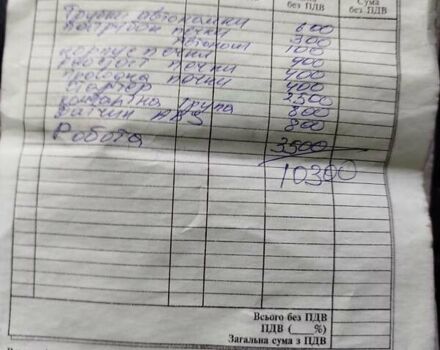 без ПДВ
Сума
без ПДВ
Трубки автономки 600
Патрубок печки 300
Антокол 100
корпус печки 400
печки 400
проводка печки 400
Стартер 3500
контактна група 800
датчик ABS 800
Робота 3500
10300
Всього без ПДВ
ПДВ (___%)
Загальна сума з ПДВ